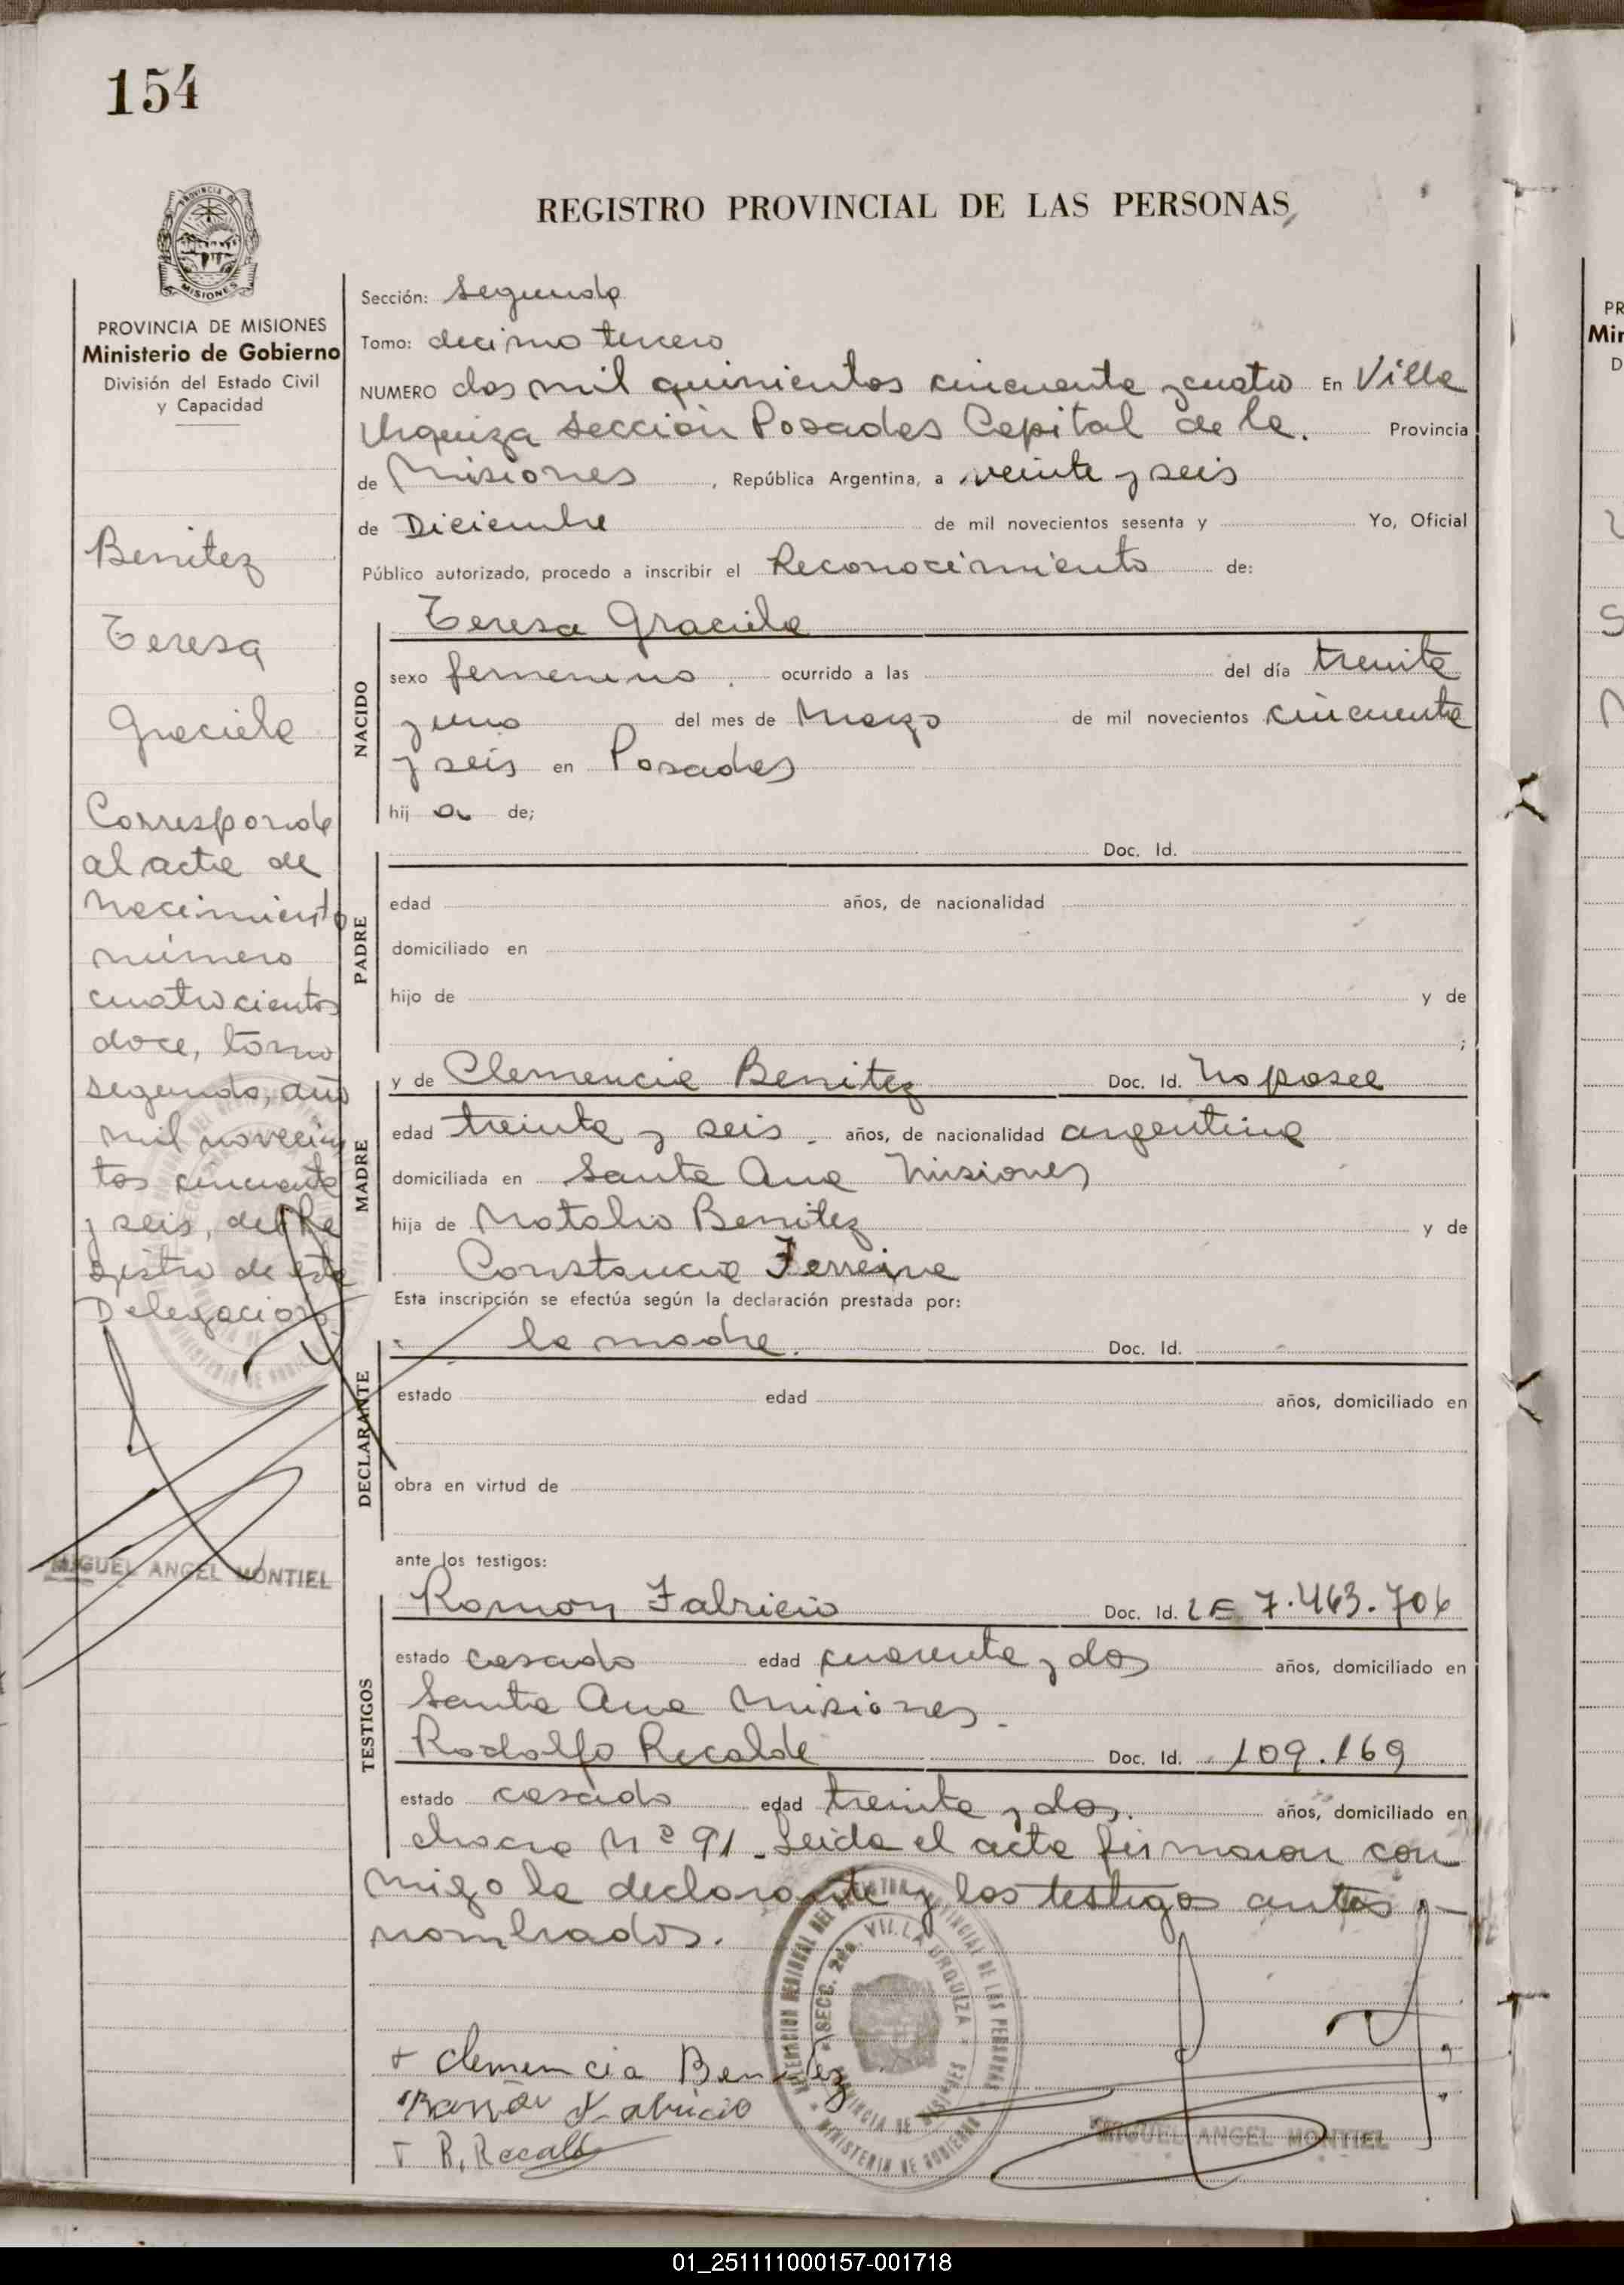 154
PROVINCIA
MISIONES
PROVINCIA DE MISIONES
Ministerio de Gobierno
División del Estado Civil
y Capacidad
Benitez
Teresa
Graciela
Corresponde
al acta de
Nacimiento
número
cuatrocientos
doce, tomo
segundo, año
mil novecien
tos cincuenta
y seis, del Re
gistro de esta
Delegación
MIGUEL ANGEL MONTIEL
REGISTRO PROVINCIAL DE LAS PERSONAS
Sección: Segunda
Tomo: decimo tercero
NUMERO dos mil quinientos cincuenta y cuatro En Villa
Urquiza Sección Posadas Capital de la. Provincia
de Misiones, República Argentina, a veinte y seis
de Diciembre de mil novecientos sesenta y Yo, Oficial
Público autorizado, procedo a inscribir el Reconocimiento de:
NACIDO
Teresa Graciela
sexo femenino. ocurrido a las del día treinta
y uno del mes de Marzo de mil novecientos cincuenta
y seis en Posadas
hij a de;
PADRE
Doc. Id.
edad años, de nacionalidad
domiciliado en
hijo de y de
;
MADRE
y de Clemencia Benitez Doc. Id. No posee
edad treinta y seis. años, de nacionalidad argentina
domiciliada en Santa Ana Misiones
hija de Natalio Benitez y de
Constancia Ferreira
Esta inscripción se efectúa según la declaración prestada por:
DECLARANTE
la madre. Doc. Id.
estado edad años, domiciliado en
obra en virtud de
ante los testigos:
TESTIGOS
Ramon Fabricio Doc. Id. LE 7.463.706
estado casado edad cuarenta y dos años, domiciliado en
Santa Ana Misiones.
Rodolfo Recalde Doc. Id. 109.169
estado casado edad treinta y dos. años, domiciliado en
chacra Nº 91_ Leida el acta firmaron con
migo la declarante y los testigos antes
nombrados.
DELEGACION REGIONAL DEL REGISTRO PROVINCIAL DE LAS PERSONAS
SECC. 2da. VILLA URQUIZA
PROVINCIA DE MISIONES
MINISTERIO DE GOBIERNO
+ Clemencia Benitez
Ramón Fabricio
R. Recalde
MIGUEL ANGEL MONTIEL
PR
Min
D
01_251111000157-001718